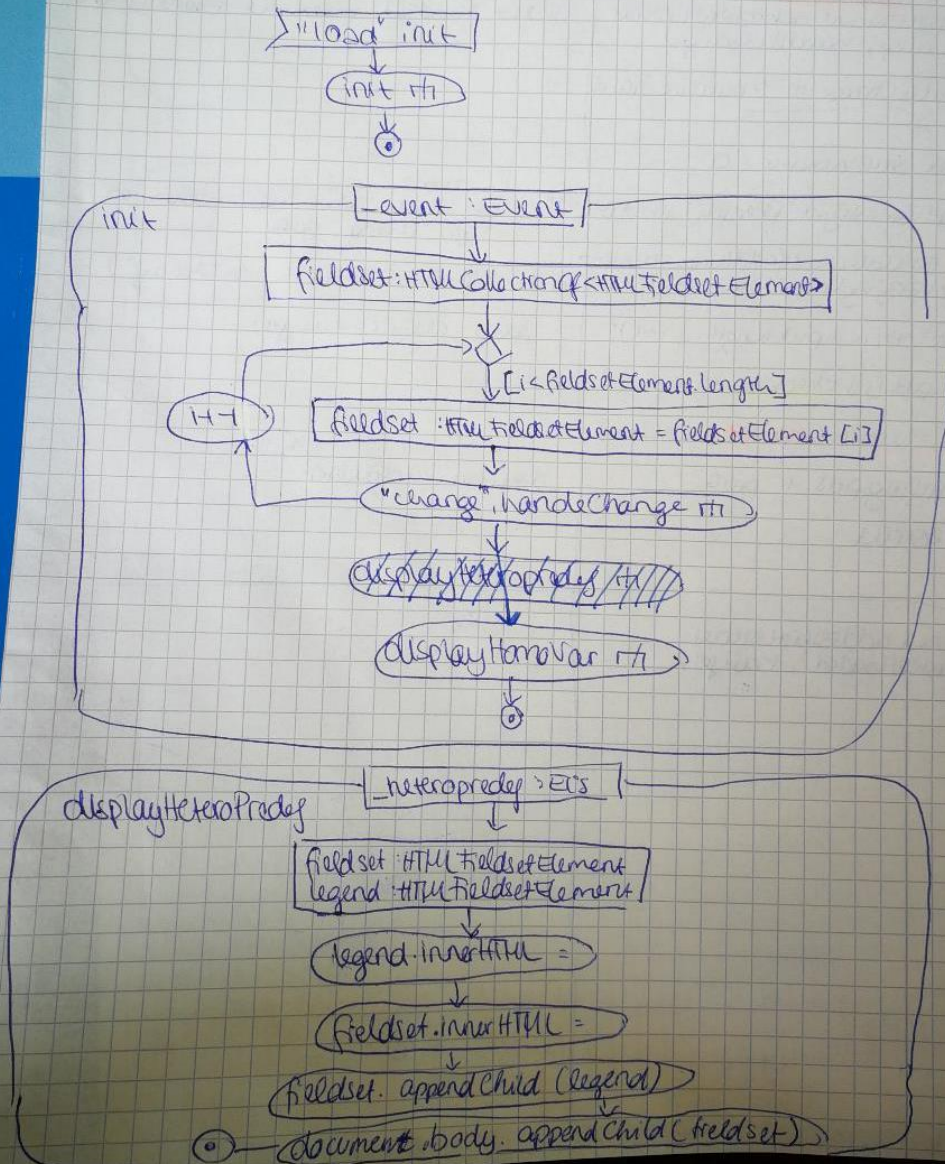 "load" init
init
_event : Event
init
fieldset:HTMLCollectionOf<HTMLFieldsetElement>
[i<fieldsetElement.length]
fieldset :HTMLFieldsetElement = fieldsetElement [i]
"change", handleChange
displayHomoVar
_heteropredef : ECs
displayHeteroPredef
fieldset :HTMLFieldsetElement
legend :HTMLFieldsetElement
legend.innerHTML =
fieldset.innerHTML =
fieldset. appendChild (legend)
document.body. appendChild (fieldset)